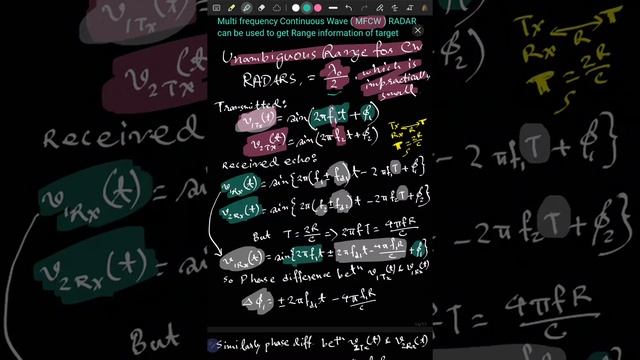 Multi frequency Continuous Wave (MFCW) RADAR
can be used to get Range information of target
Unambiguous Range for CW
RADARS, = λ₀/2, which is impractically small
Tx R
Rx
T = 2R/C
Transmitted:
v₁Tx(t) = sin(2πf₁t + φ₁)
v₂Tx(t) = sin(2πf₂t + φ₂)
Received echo:
v₁Rx(t) = sin{2π(f₁ ± fd₁)t - 2πf₁T + φ₁}
v₂Rx(t) = sin{2π(f₂ ± fd₂)t - 2πf₂T + φ₂}
But T = 2R/C => 2πfT = 4πfR/C
v₁Rx(t) = sin{2πf₁t ± 2πfd₁t - 4πf₁R/C + φ₁}
So Phase difference betⁿ v₁Tx(t) & v₁Rx(t)
Δφ₁ = ± 2πfd₁t - 4πf₁R/C
Similarly phase diff. betⁿ v₂Tx(t) & v₂Rx(t)
v₂Tx(t)
Received
v₁Rx(t) = sin
v₂Rx(t) = sin
But
Tx
Rx R
T = 2R/C
φ₂)
- 2πf₁T + φ₁}
- 2πf₂T + φ₂}
T = 4πfR/C